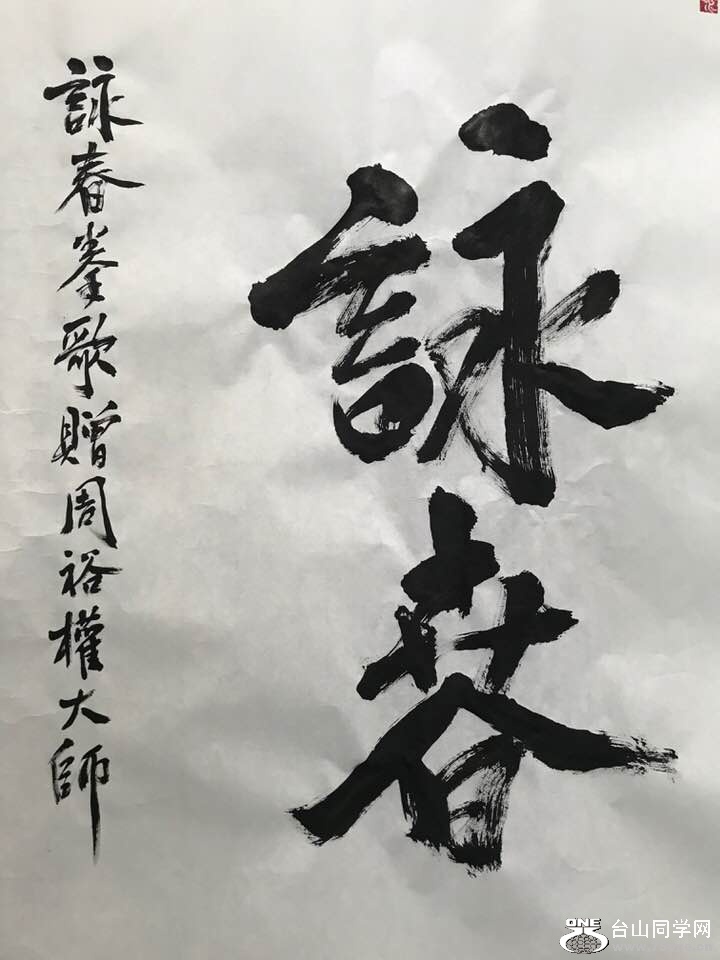 詠春
詠春拳歌贈周裕權大師
ONE
台山同学网